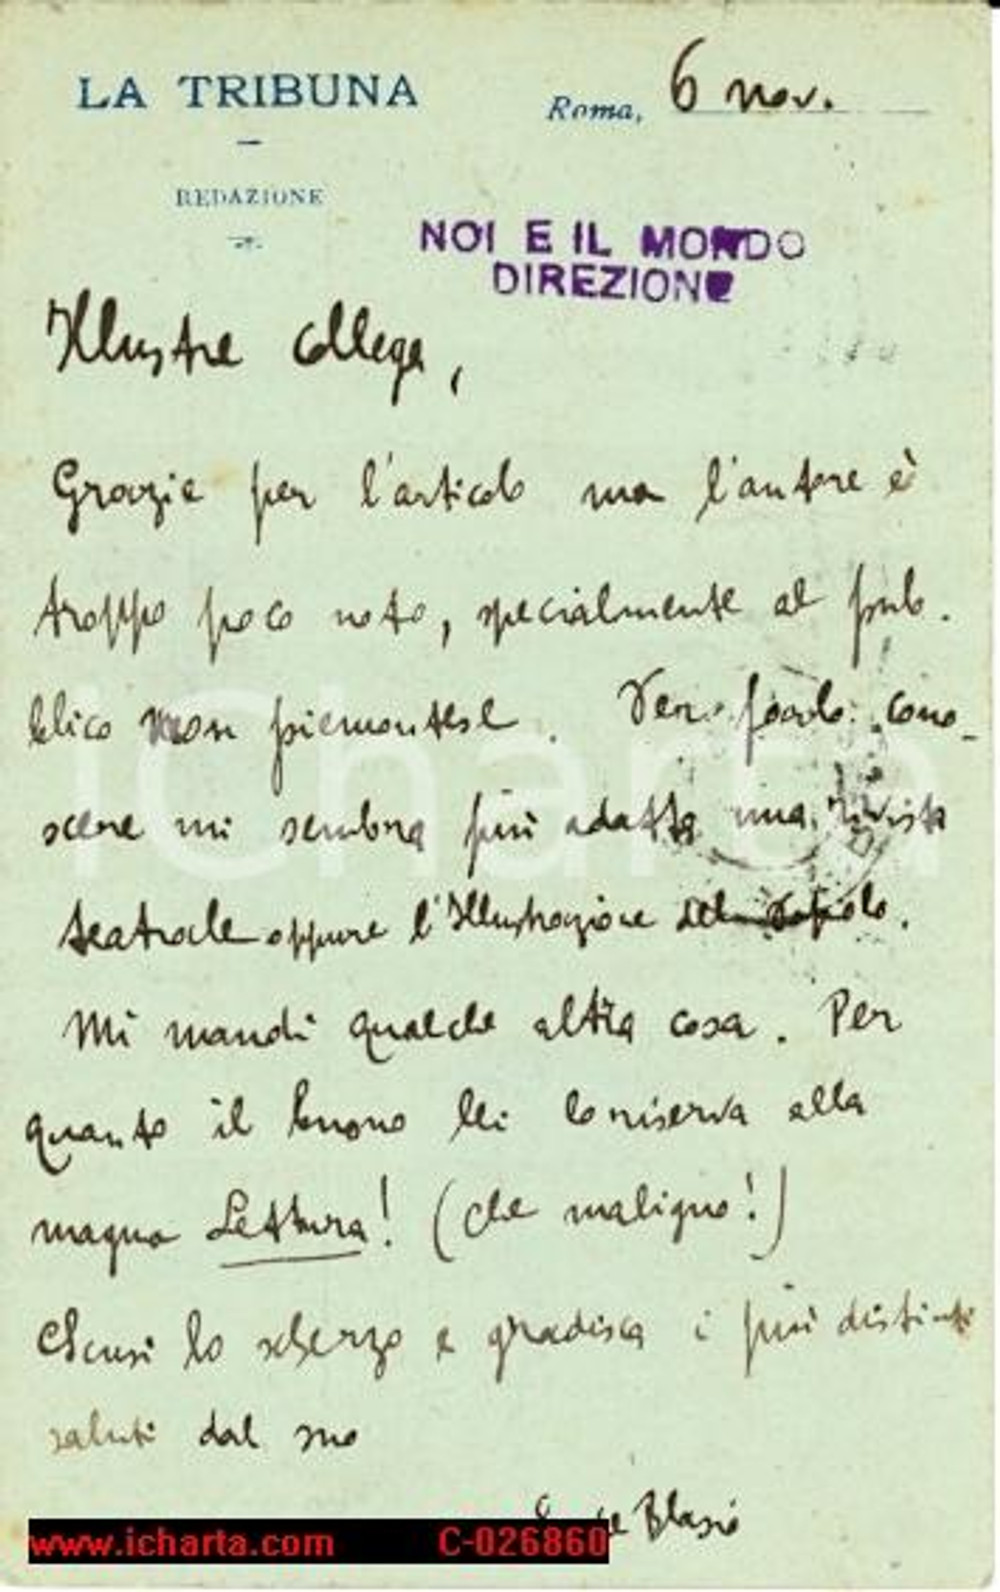 LA TRIBUNA
Roma, 6 nov.
REDAZIONE
NOI E IL MONDO
DIREZIONE
Illustre collega,
Grazie per l'articolo ma l'autore è
troppo poco noto, specialmente al pub-
blico non piemontese. Per farlo cono-
scere mi sembra più adatta una rivista
teatrale oppure l'Illustrazione del popolo.
Mi mandi qualche altra cosa. Per
quanto il buono lei lo riserva alla
magna Lettura! (che maligno!)
Scusi lo scherzo e gradisca i più distinti
saluti dal suo
Blasi
www.icharta.com C-026860
iCharta